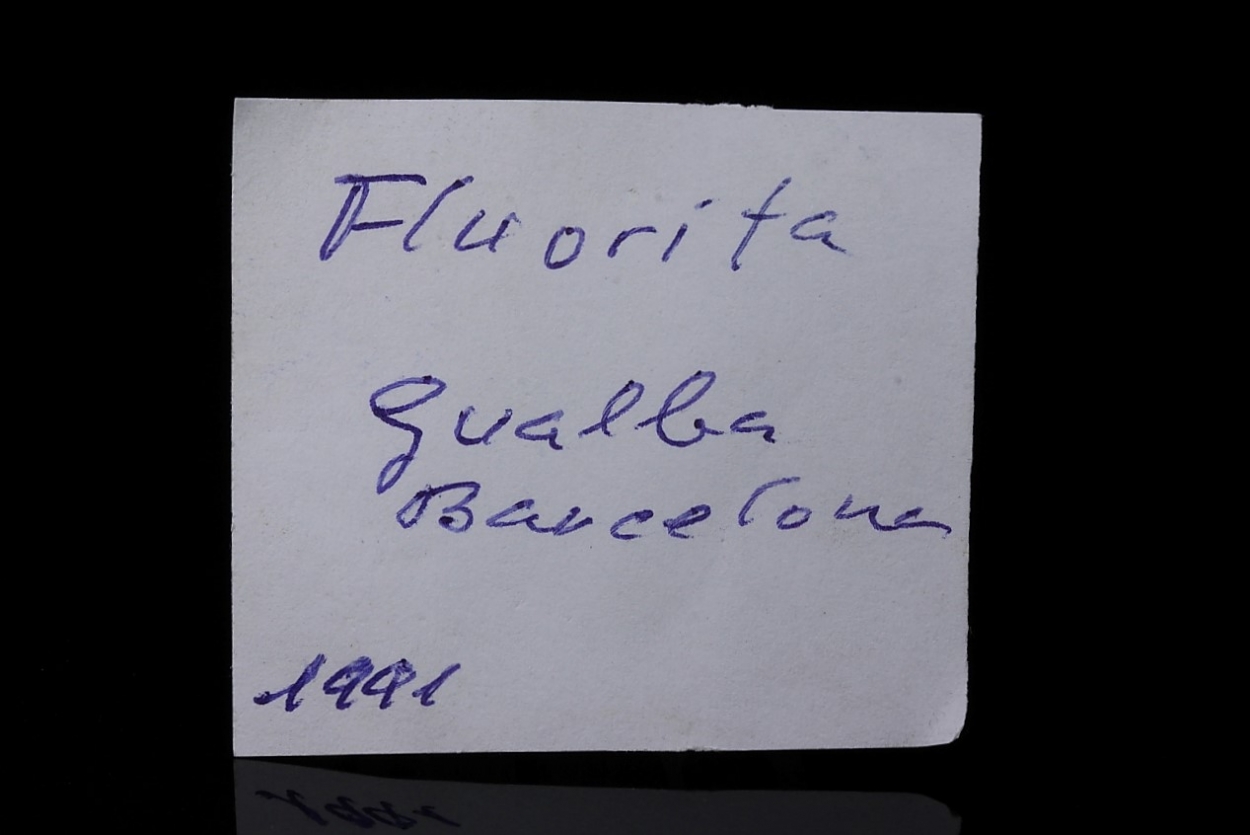 Fluorita
Gualba
Barcelona
1991